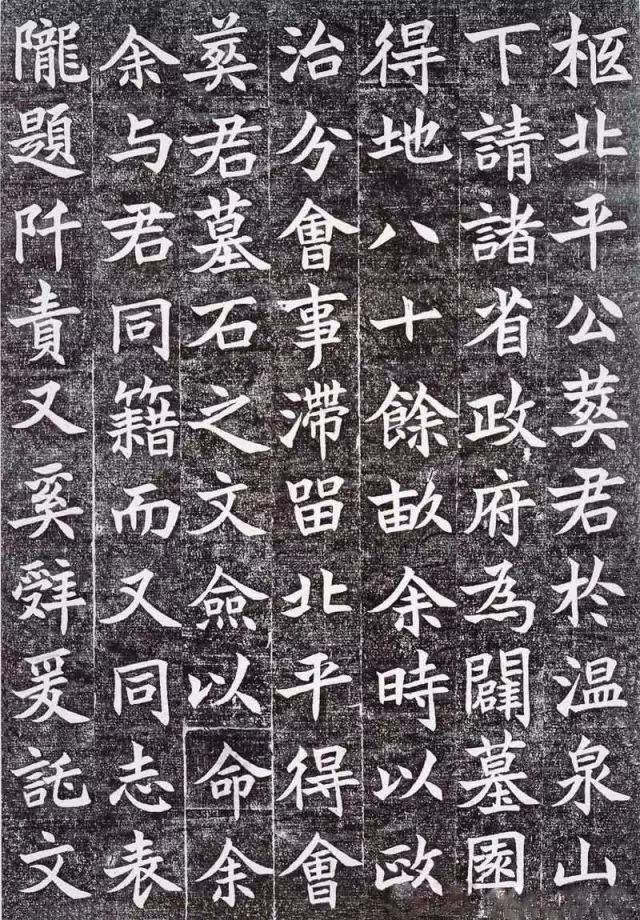 柩北平公葬君於温泉山
下請諸省政府為闢墓園
得地八十餘畝余時以政
治分會事滯留北平得會
葬君墓石之文僉以命余
余与君同籍而又同志表
隴題阡責又奚辤爰託文